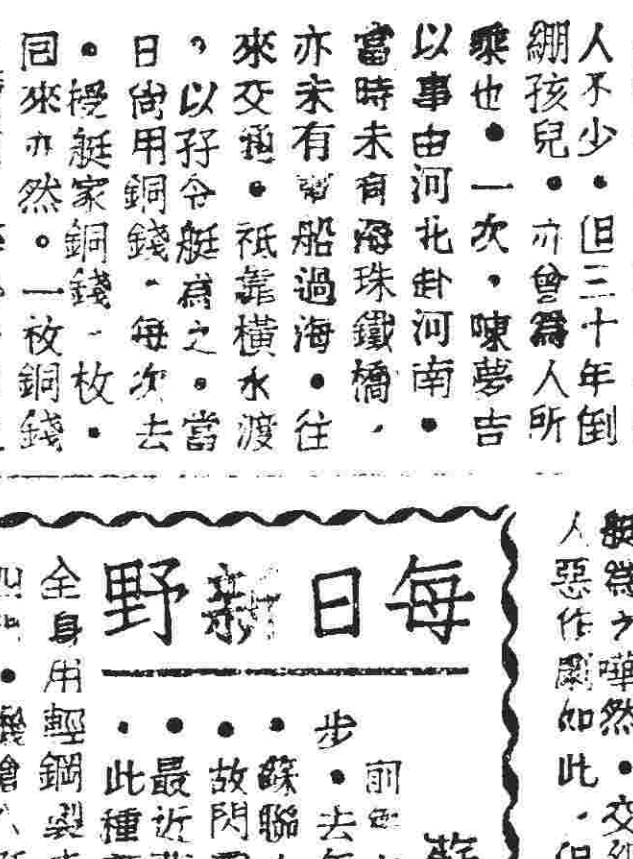 人不少•但三十年倒
綳孩兒•亦曾爲人所
乘也•一次•陳夢吉
以事由河北赴河南•
當時未有海珠鐵橋，
亦未有電船過海•往
來交通•祗靠橫水渡
，以孖令艇爲之•當
日尙用銅錢•每次去
•授艇家銅錢一枚•
囘來亦然。一枚銅錢
艇爲之嘩然•交
人惡作劇如此•但
每日新野
步•去
•蘇聯
•故閃
•最近
•此種
全身用輕鋼製